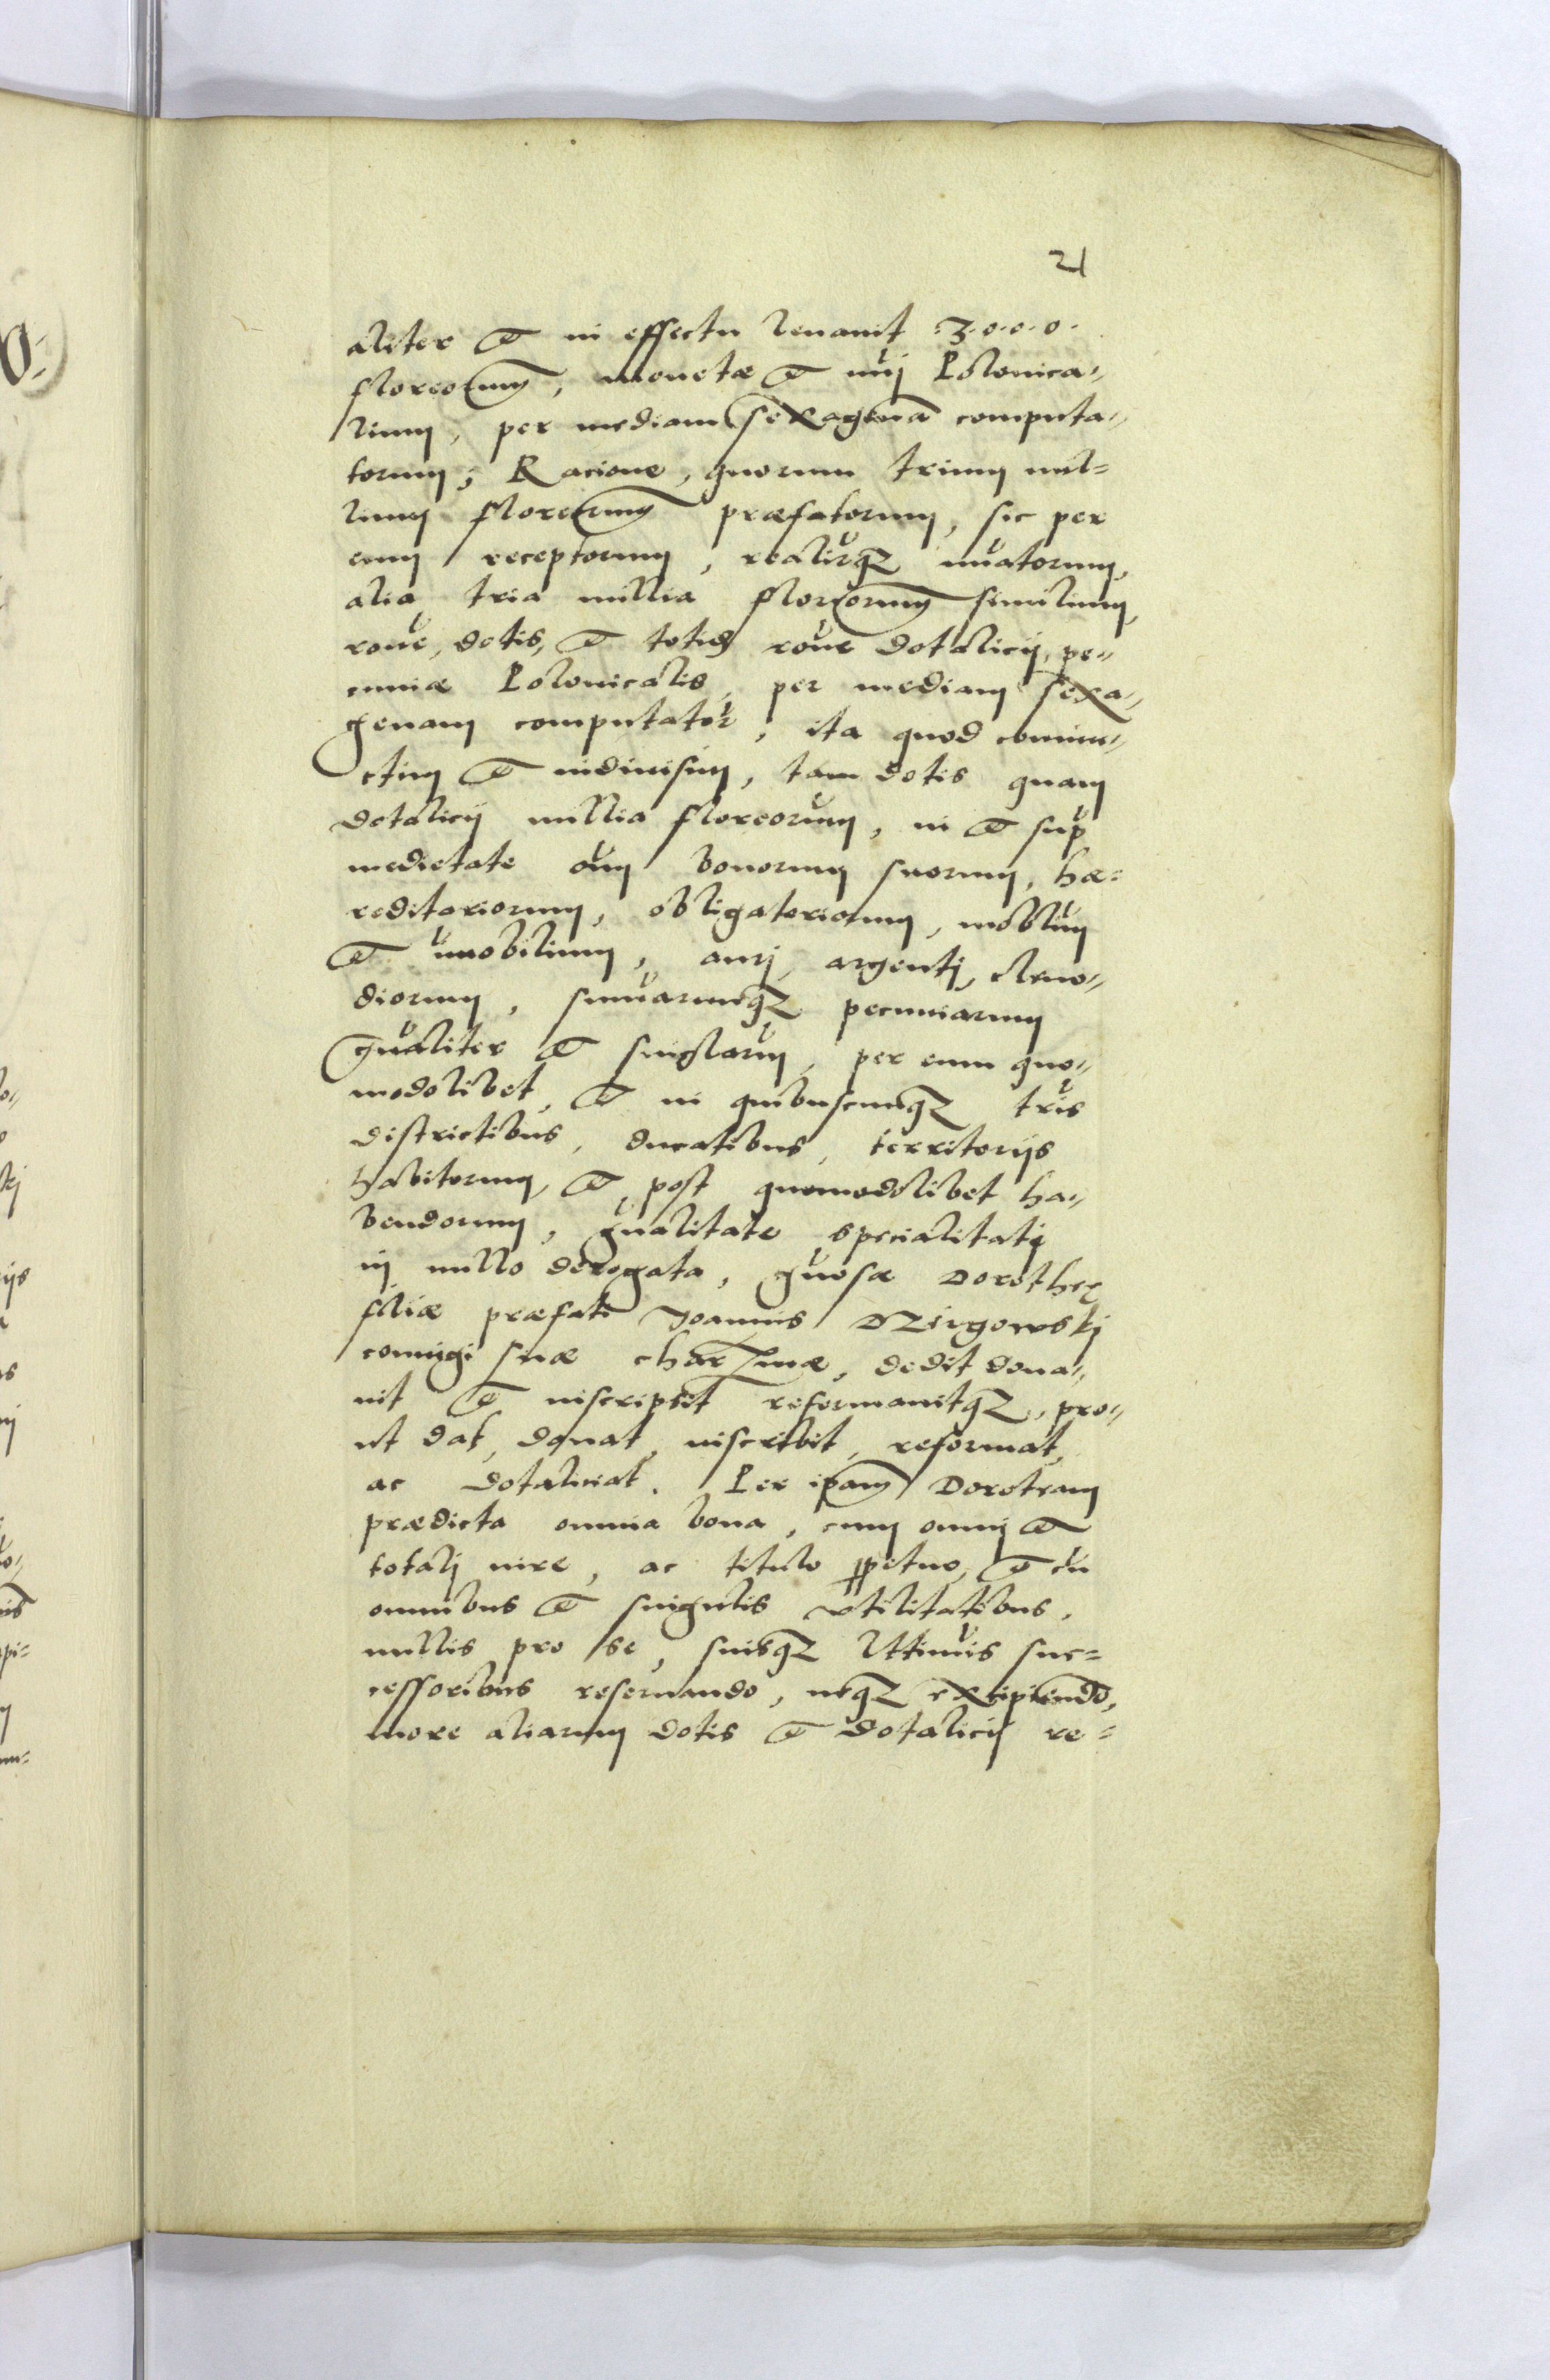 21
aliter et in effectu leuauit 3.0.0.0.
florenorum, monetæ et nūj Polonica-
lium, per mediam sexagenā computa-
torum; Racione, quorum trium mil-
lium florenorum præfatorum, sic per
eum receptorum, realiterqȝ nūatorum,
alia tria millia florenorum similium,
rōne, dotis, et totidē rōne dotalicij, pe-
cuniæ Polonicalis, per mediam sexa-
genam computator̄, ita quod coniun-
ctim et indiuisim, tam dotis quam
dotalicij millia florenorum, in et sup̄
medietate ōium bonorum suorum, hæ-
reditariorum, obligatoriorum, mobīlium
et īmobilium, aurj, argentj, cleno-
diorum, sum̄arumqȝ pecuniarum
gn̄aliter et singlarum, per eum quo-
modolibet, et in quibuscunqȝ tr̄is
districtibus, ducatibus, territorijs
habitorum, et post quomodolibet ha-
bendorum, gn̄alitate specialitatj
in nullo derogata, gn̄osæ Dorotheæ
filiæ præfati Joannis Dzirgowskj
coniugi suæ char̄imæ, dedit dona-
uit et inscripsit reformauitqȝ, pro-
ut dat, donat, inscribit, reformat,
ac dotaliciat. Per ip̄am Dorotheam
prædicta omnia bona, cum omnj et
totalj iure, ac titulo ꝑpetuo, et cū
omnibus et singulis vtilitatibus,
nullis pro se, suisqȝ lĩttimis suc-
cessoribus reseruando, neqȝ excipiendo,
more aliarum dotis et dotalicij re-